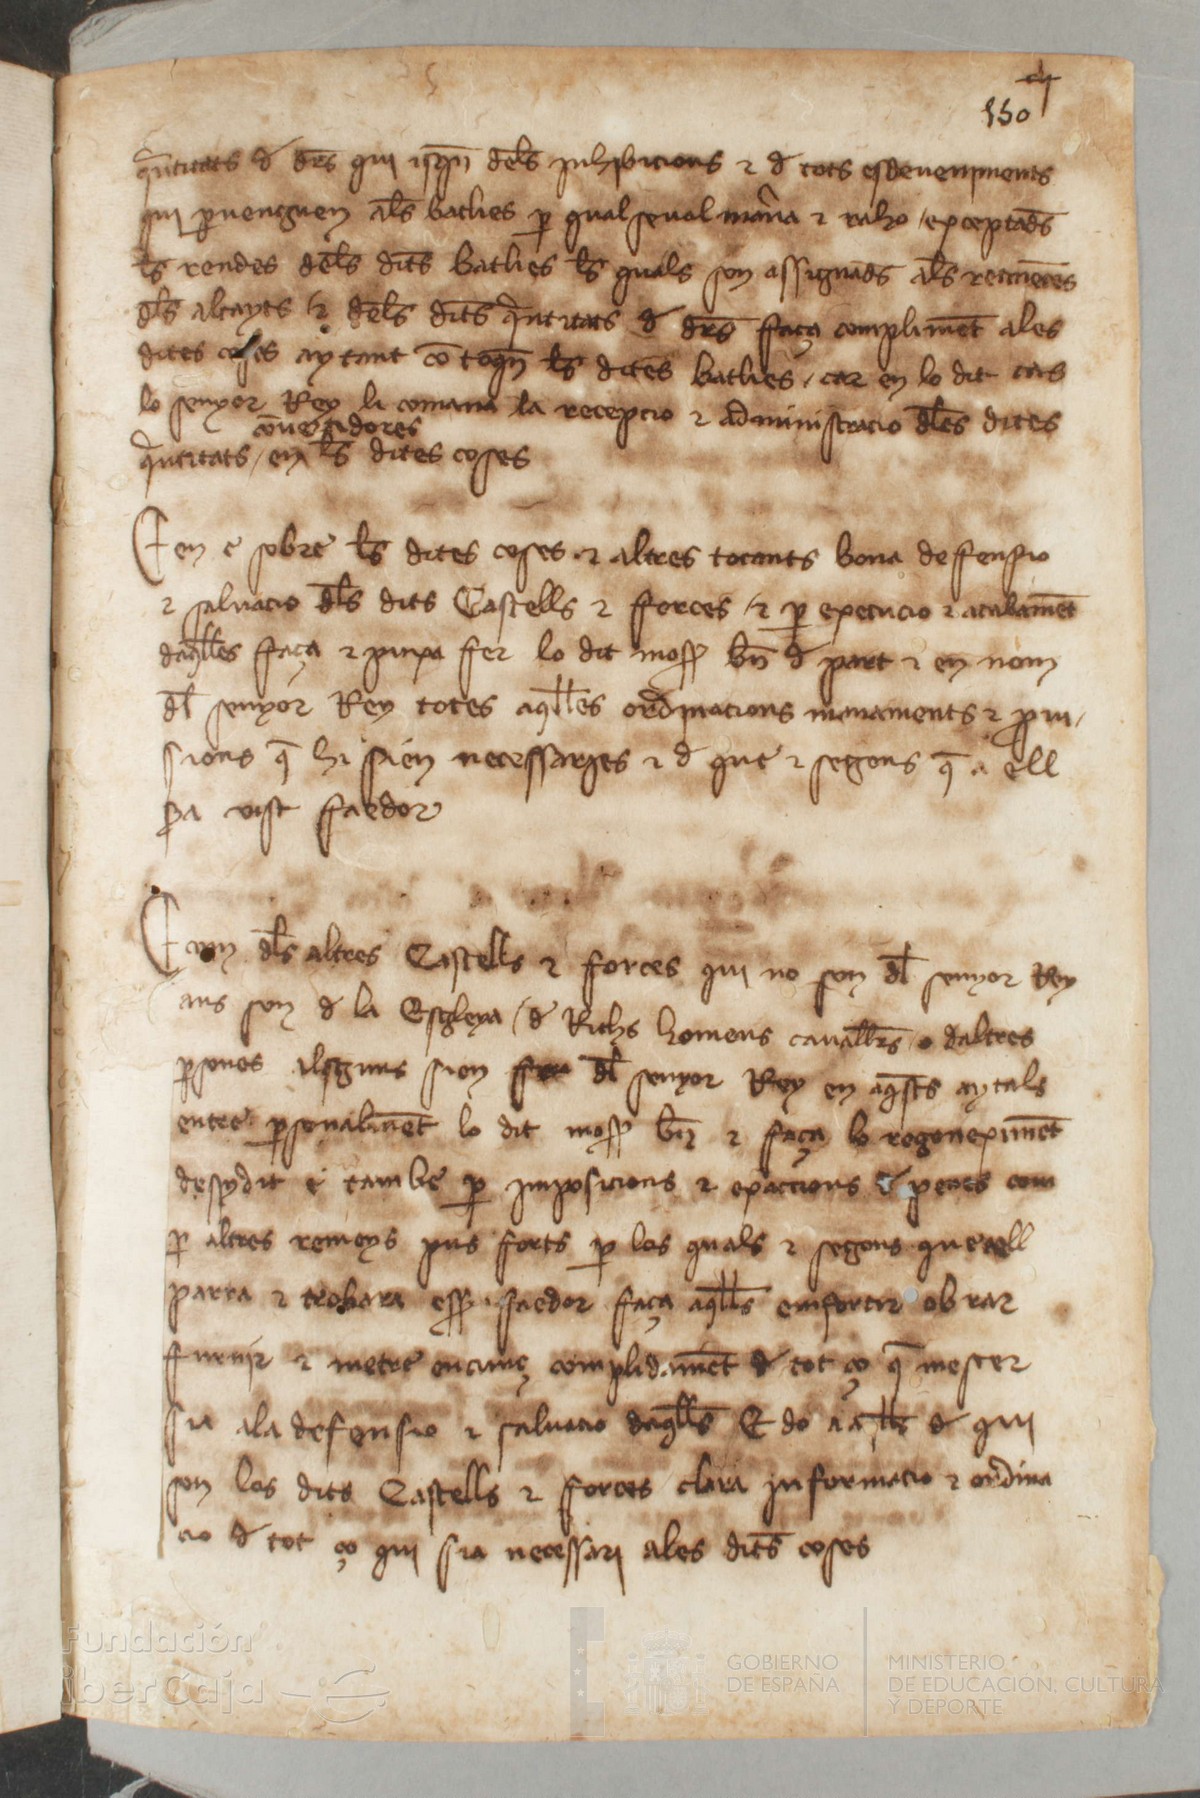 150
q̃ntitats d drs̃ qui isq̃n dels̃ inhibicions ⁊ d tots esdeveniments
qui p̱venguen als̃ batlies p̱ qual sevol mañia ⁊ raho / exceptads̃
ls̃ rendes dels̃ dits̃ batlies ls̃ quals son assignads̃ als̃
dls̃ alcayts / ⁊ dels̃ dits̃ q̃ntitats d drs̃ faça complimẽt ales
dites coses aytant cõ toq̃n ls̃ dites̃ batlies / car en lo dit cas
lo senyor Rey li comana la recepcio ⁊ administracio dl̃es dites
cõvertidores
q̃ntitats / en ls̃ dites coses
E en e sobre ls̃ dites coses ⁊ altres tocants bona deffensio
⁊ salvacio dls̃ dits Castells ⁊ fforces / ⁊ p̱ execucio ⁊ acabamẽt
daq̃lles faça ⁊ puixa fer lo dit moss̃ bñ d part ⁊ en nom
dl̃ senyor Rey totes aq̃lles ordinacions manaments ⁊ p̱vi/
sions q̃ hi sien necessaries ⁊ d que ⁊ segons q̃ a ell
sera vist faedor
E com dls̃ altres Castells ⁊ forces qui no son dl̃ senyor Rey
ans son d la Esgleya / d Richs homens cavallr̃s o daltres
p̱sones alsguns sien dl̃ senyor Rey en aq̃sts aytals
entre p̱sonalmẽt lo dit moss̃ bñ ⁊ faça lo regonexim̃ẽt
desusdit e tambe p̱ imposicions ⁊ exaccions d penes com
p̱ altres remeys pus forts p̱ los quals ⁊ segons que ell
parra ⁊ trobara ess̃ faedor faça aq̃lls enfortir obrar
furnir ⁊ metre encunç complidamẽt d tot ço q̃ mester
sia ala defensio ⁊ salvacio daq̃lls E do a aq̃lls d qui
son los dits Castells ⁊ forces clara informacio ⁊ ordina
cio d tot ço qui sia necessari ales dits̃ coses
Fundación
iberCaja
GOBIERNO
DE ESPAÑA
MINISTERIO
DE EDUCACIÓN, CULTURA
Y DEPORTE